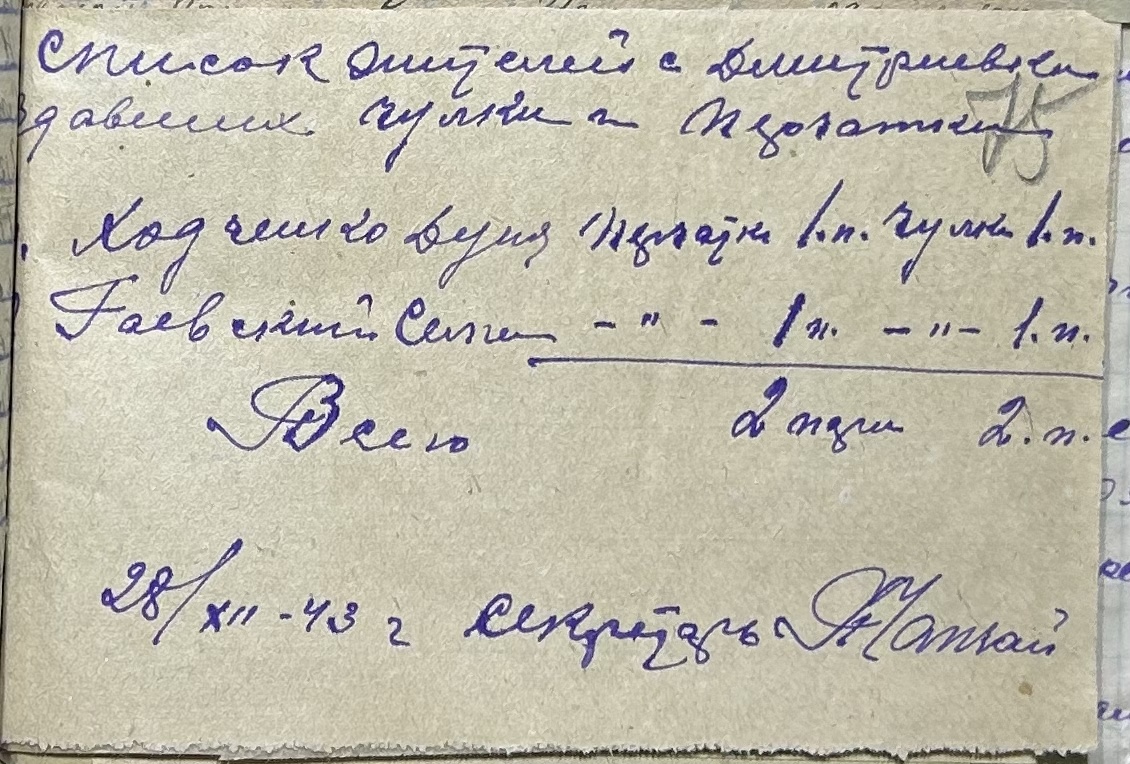 Список жителей с Дмитриевки
здавших чулки и перчатки
75
Ходченко Дуня перчатки 1.п. чулки 1.п.
Гаевский - " - 1 п. - " - 1.п.
Всего 2 пари 2.п.
28/XII-43 г секретарь